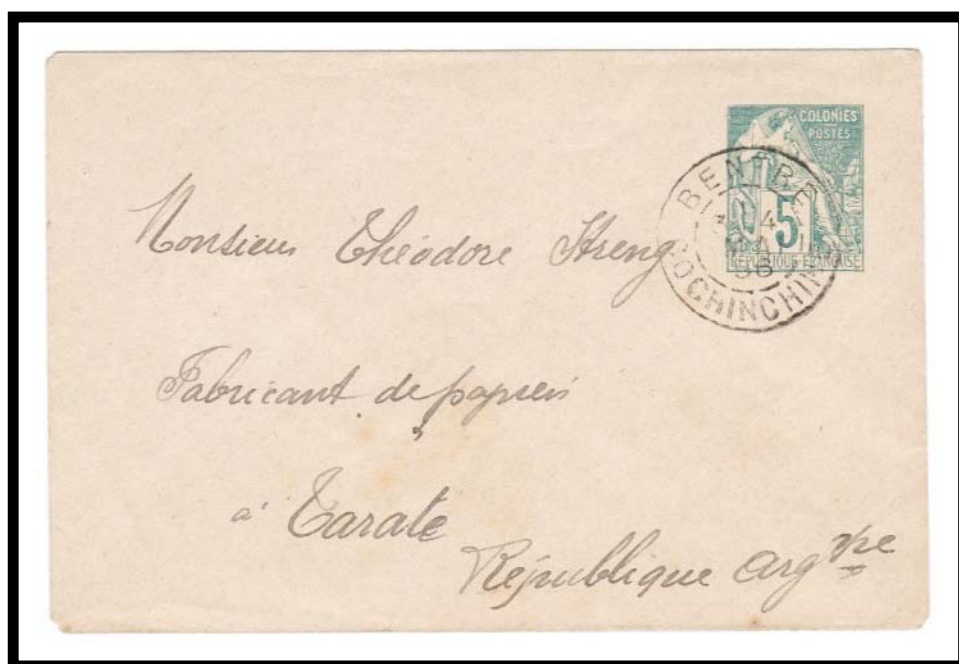 COLONIES
POSTES
5
RÉPUBLIQUE FRANÇAISE
BENTRE
4
96
COCHINCHINE
Monsieur Théodore
Fabricant de papiers
à Zarate
République Arg